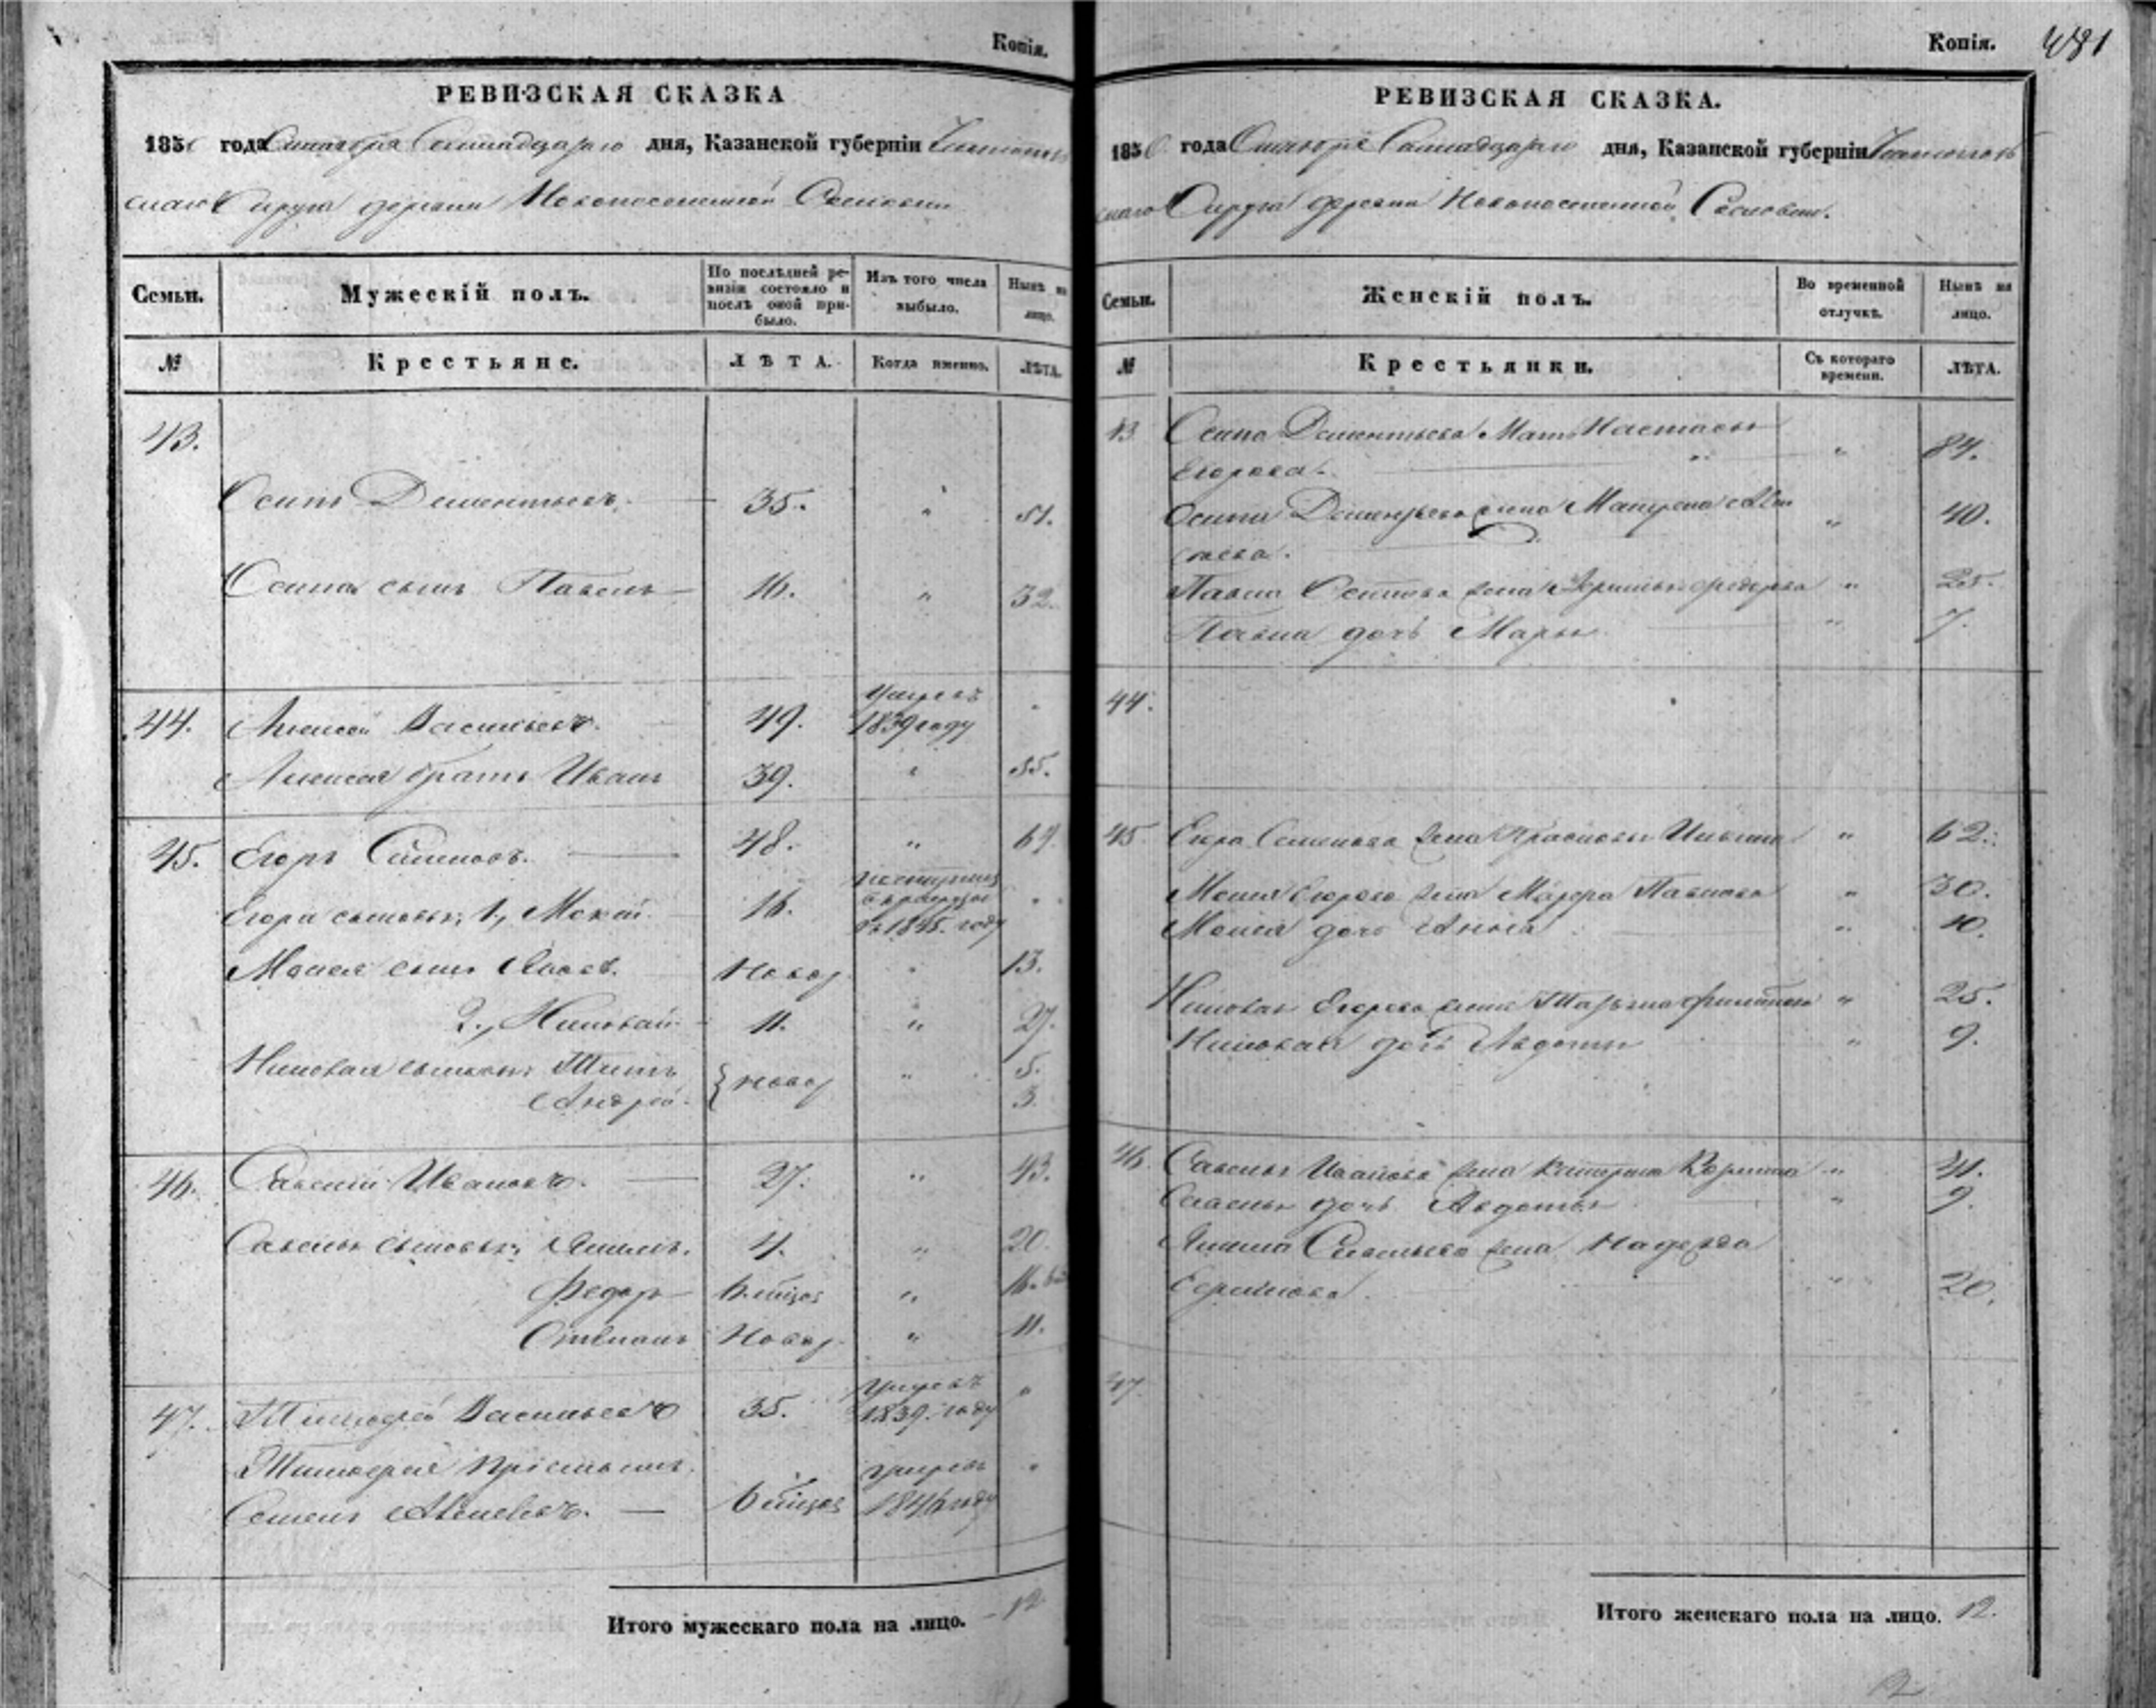 Копія.
РЕВИЗСКАЯ СКАЗКА
1850 года Октября Семнадцатаго дня, Казанской губерніи Чистополь
скаго Округа деревни Новопоселенной
Семьи.
Мужескій полъ.
По послѣдней ре-
визіи состояло и
послѣ оной при-
было.
Изъ того числа
выбыло.
Нынѣ на
лицо.
№
Крестьяне.
ЛѢТА.
Когда именно.
ЛѢТА.
43.
Осипъ Дементьевъ. 35. " 51.
Осипа сынъ Павелъ 16. " 32.
44. Алексей Васильевъ. 49. умеръ 1839 году "
Алексея братъ Иванъ 39. " 55.
45. Егоръ Семеновъ. 48. " 64
Егора сыновья: 1, Мокей 16. въ 1845. году "
Мокея сынъ Яковъ. Новор. " 13.
2., Николай 11. " 27.
Николая сыновья Титъ
Андрей. новор " 5.
3.
46. Савелій Ивановъ. 27. " 43.
Савелья сыновья: 4. " 20.
Федоръ 6 мѣцов " 16.
Степанъ Новор. " 11.
47. Тимофей Васильевъ 35. умеръ 1839. году "
Тимофея пріемышъ
Семенъ Алексѣевъ. 6 мѣцов умеръ 1846 году "
Итого мужескаго пола на лицо. 12
Копія. 481
РЕВИЗСКАЯ СКАЗКА.
1850 года Октября Семнадцатаго дня, Казанской губерніи Чистополь
скаго Округа деревни Новопоселенной
Семьи.
Женскій полъ.
Во временной
отлучкѣ.
Нынѣ на
лицо.
№
Крестьянки.
Съ котораго
времени.
ЛѢТА.
43 Осипа Дементьева Мать Настасья
Егорова. " 84.
Осипа Дементьева жена Матрена
" 40.
Павла Осипова жена " 25.
Павла дочь Марья " 7.
44.
45 Егора Семенова жена " 62.
Мокея Егорова жена Марфа Павлова " 30.
Мокея дочь Анна " 10.
Николая Егорова жена Татьяна " 25.
Николая дочь Авдотья " 9.
46. Савелья Иванова жена Катерина " 41.
Савелья дочь Авдотья " 9.
Савельева жена Надежда
" 20.
47
Итого женскаго пола на лицо. 12.